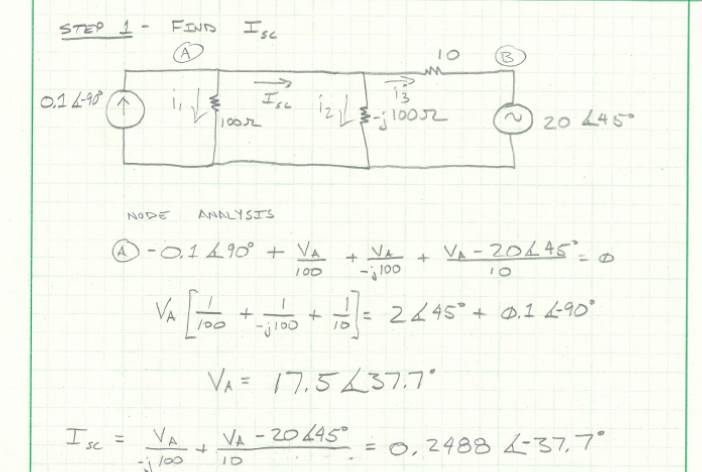 STEP 1 - FIND Isc
A
10
B
0.1∠-90°
i1
100Ω
Isc
i2
-j100Ω
i3
20∠45°
NODE ANALYSIS
A -0.1∠90° + VA/100 + VA/-j100 + (VA - 20∠45°)/10 = 0
VA [1/100 + 1/-j100 + 1/10] = 2∠45° + 0.1∠-90°
VA = 17.5∠37.7°
Isc = VA/-j100 + (VA - 20∠45°)/10 = 0.2488 ∠-37.7°